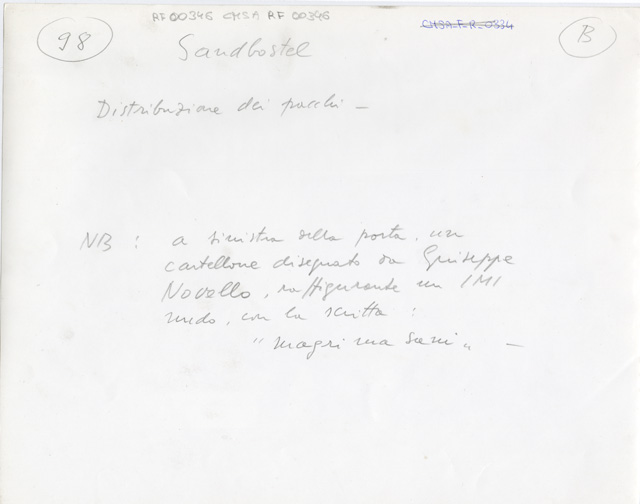 RF 00346 CMSA RF 00346
CMSA-F-R-0334
98
B
Sandbostel
Distribuzione dei pacchi —
NB : a sinistra della porta, un
cartellone disegnato da Giuseppe
Novello, raffigurante un IMI
nudo, con la scritta :
"magri ma sani„ —